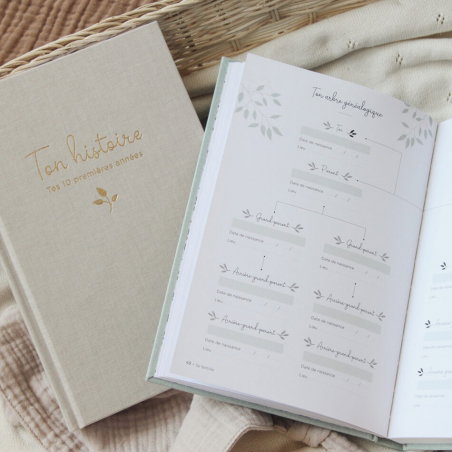 Ton histoire
Tes 10 premières années
Ton arbre généalogique
Toi
Date de naissance / /
Lieu
Parent
Date de naissance / /
Lieu
Grand-parent
Date de naissance / /
Lieu
Grand-parent
Date de naissance / /
Lieu
Arrière-grand-parent
Date de naissance / /
Lieu
Arrière-grand-parent
Date de naissance / /
Lieu
Arrière-grand-parent
Date de naissance / /
Lieu
Arrière-grand-parent
Date de naissance / /
Lieu